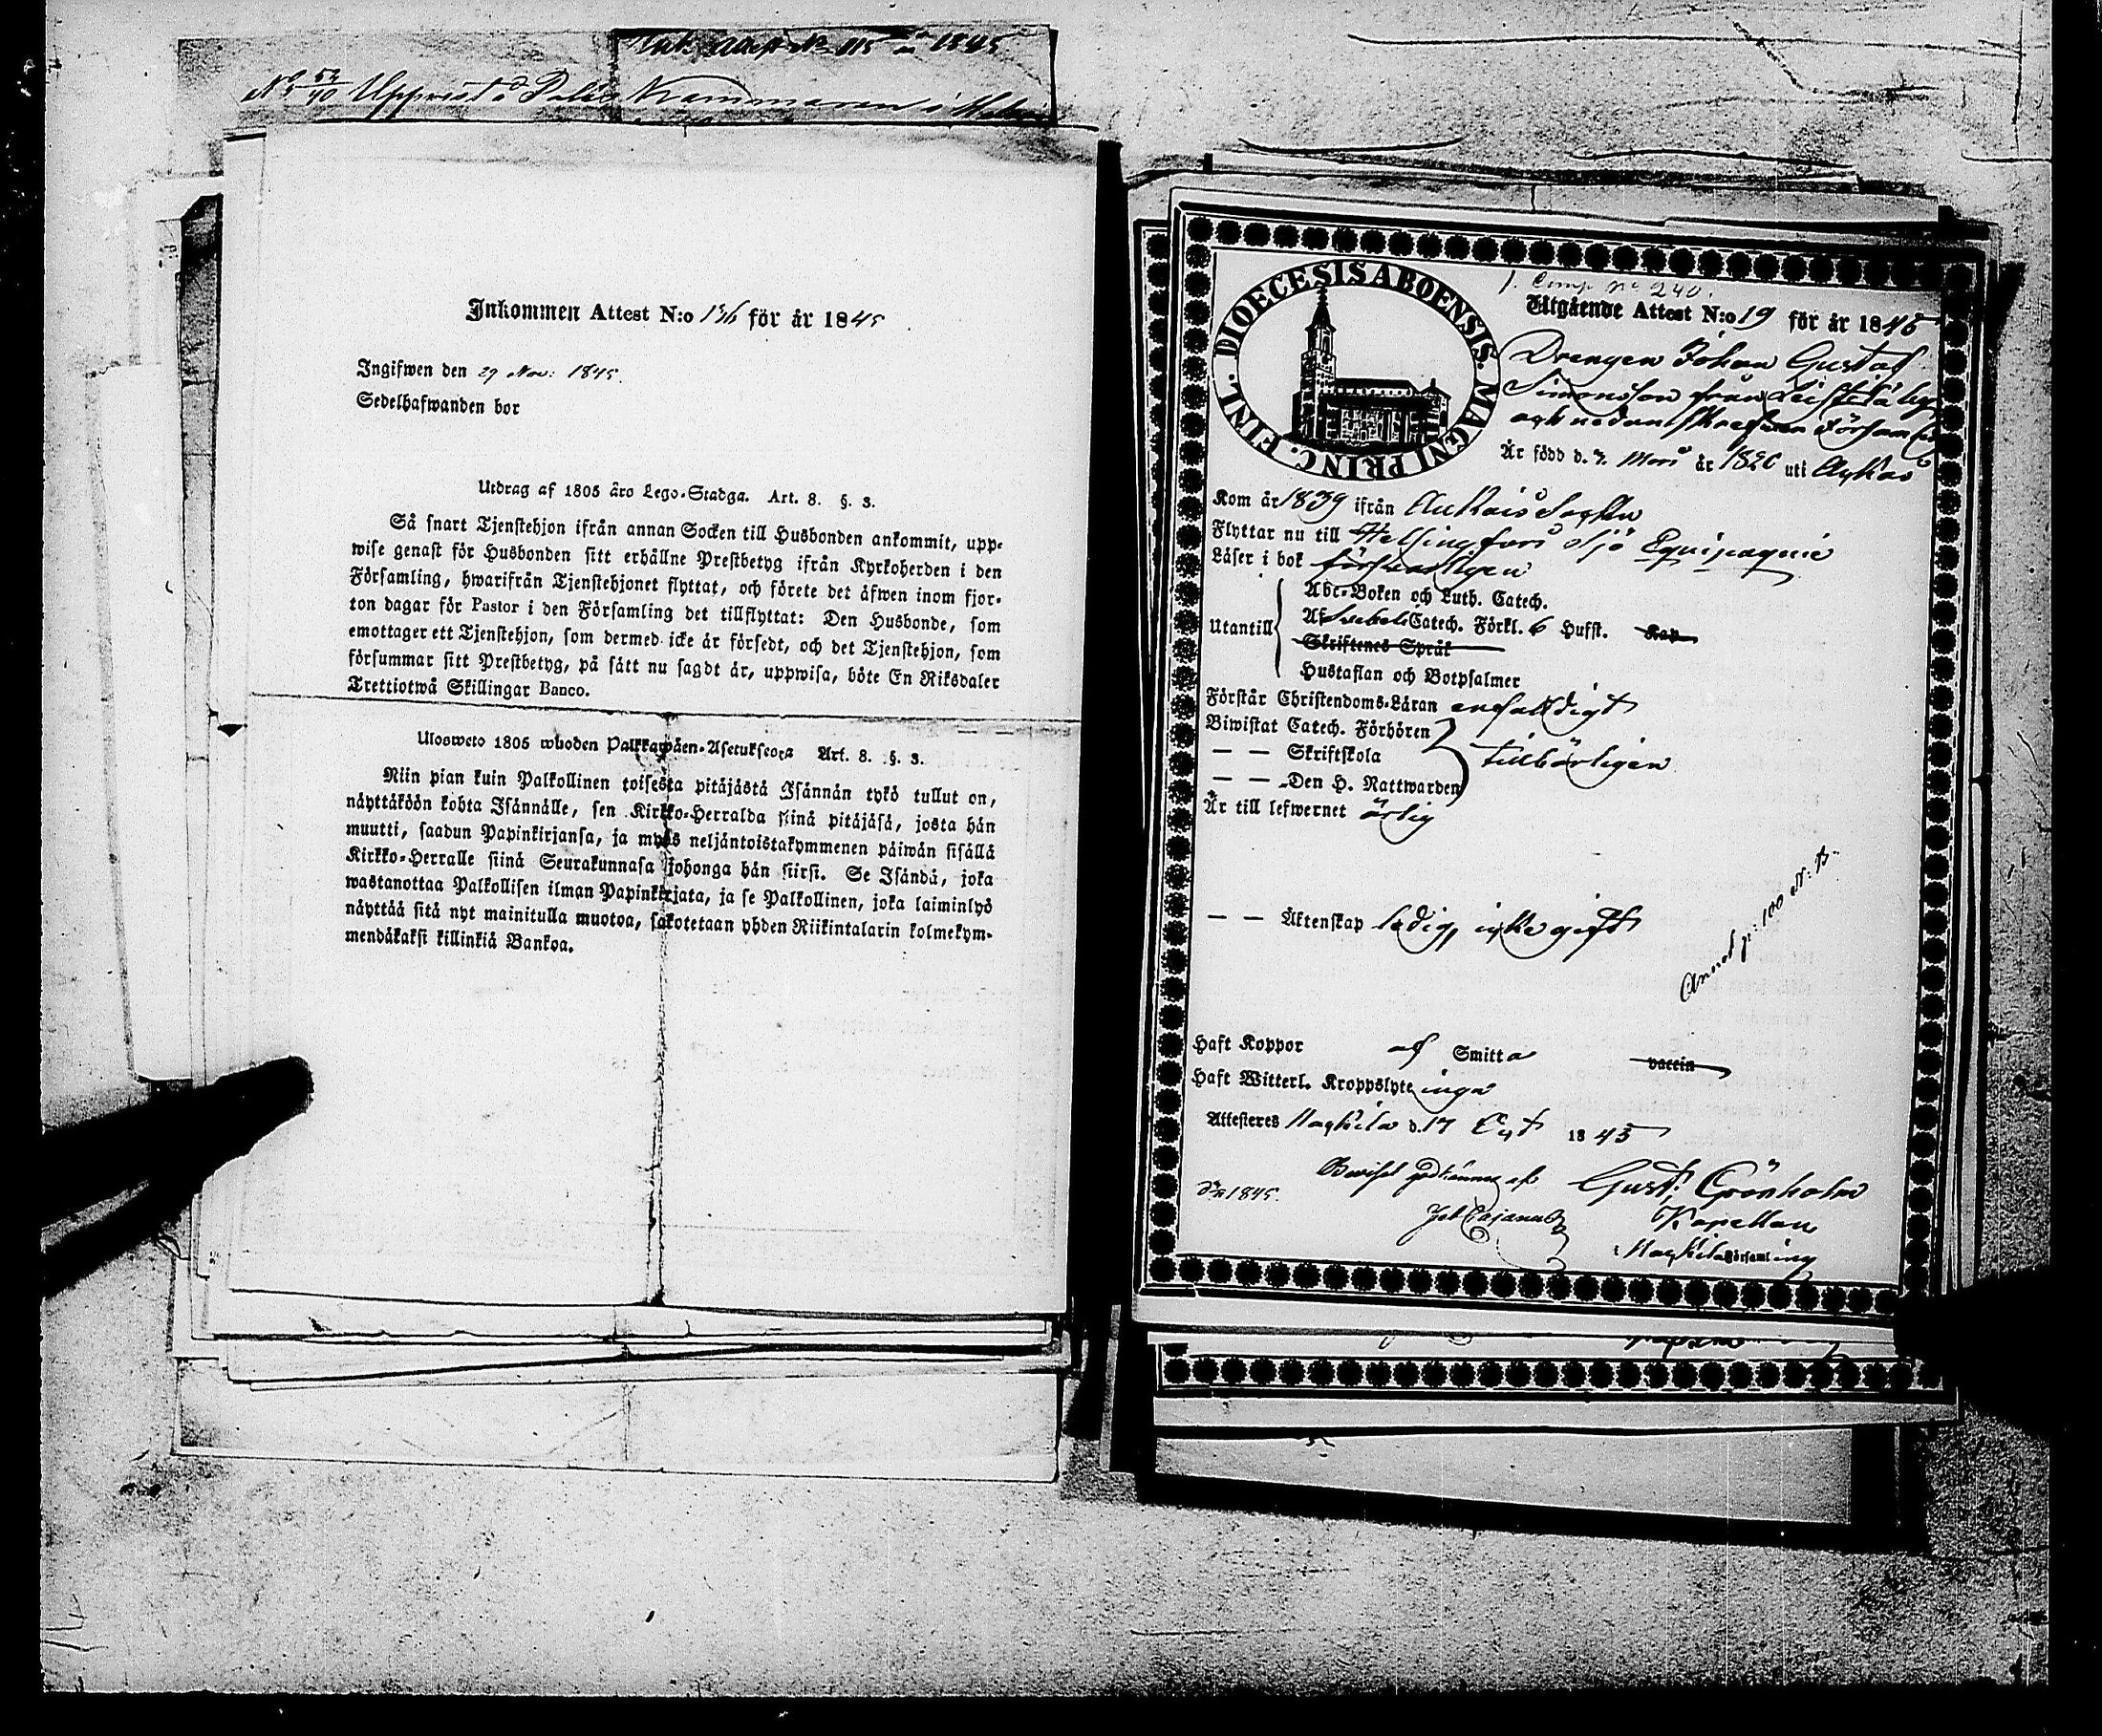 Ink. Attest No 115 år 1845
Uppvist å Polis Kammaren i
Inkommen Attest N:o 136 för år 1845
Ingifwen den 29 Nov: 1845.
Sedelhafwanden bor
Utdrag af 1805 års Lego-Stadga. Art. 8. §. 3.
Så snart Tjenstehjon ifrån annan Socken till Husbonden ankommit, upp-
wise genast för Husbonden sitt erhållne Prestbetyg ifrån Kyrkoherden i den
Församling, hwarifrån Tjenstehjonet flyttat, och förete det äfwen inom fjor-
ton dagar för Pastor i den Församling det tillflyttat: Den Husbonde, som
emottager ett Tjenstehjon, som dermed icke är försedt, och det Tjenstehjon, som
försummar sitt Prestbetyg, på sätt nu sagdt är, uppwisa, böte En Riksdaler
Trettiotwå Skillingar Banco.
Ulosweto 1805 wuoden Palkkawäen-Asetuksesta Art. 8. §. 3.
Niin pian kuin Palkollinen toisesta pitäjästä Isännän tykö tullut on,
näyttäköön kohta Isännälle, sen Kirkko-Herralda siinä pitäjäsä, josta hän
muutti, saadun Papinkirjansa, ja myös neljäntoistakymmenen päiwän sisällä
Kirkko-Herralle siinä Seurakunnasa johonga hän siirsi. Se Isändä, joka
wastanottaa Palkollisen ilman Papinkirjata, ja se Palkollinen, joka laiminlyö
näyttää sitä nyt mainitulla muotoa, sakotetaan yhden Riikintalarin kolmekym-
mendäkaksi killinkiä Bankoa.
DIOECESIS ABOENSIS. MAGNI PRINC. FINL.
1. Comp. No 240.
Utgående Attest N:o 19 för år 1845
Drengen Johan Gustaf
Simonsson från Leistilä by
och nedanskrefven Församl
Är född d. 7. Mars år 1820 uti
Kom år 1839 ifrån Socken
Flyttar nu till Helsingfors Sjö Equipagerie
Läser i bok försvarligen
Utantill
Abc-Boken och Luth. Catech.
Af Svebeli Catech. Förkl. 6 Hufst. Kap
Skriftenes Språk
Hustaflan och Botpsalmer
Förstår Christendoms-Läran enfaldigt
Biwistat Catech. Förhören
— — Skriftskola tillbörligen
— — Den H. Nattwarden
Är till lefwernet ärlig
— — Äktenskap ledig, icke gift
Annot p: 100 N: B.
Haft Koppor af Smitta vaccin
Haft Witterl. Kroppslyte inga
Attesteres Nakkila d. 17 Oct 1845
Beviset godkännes af Gust: Grönholm
1845. Joh Cajanus Kapellan
i Nakkila Församling